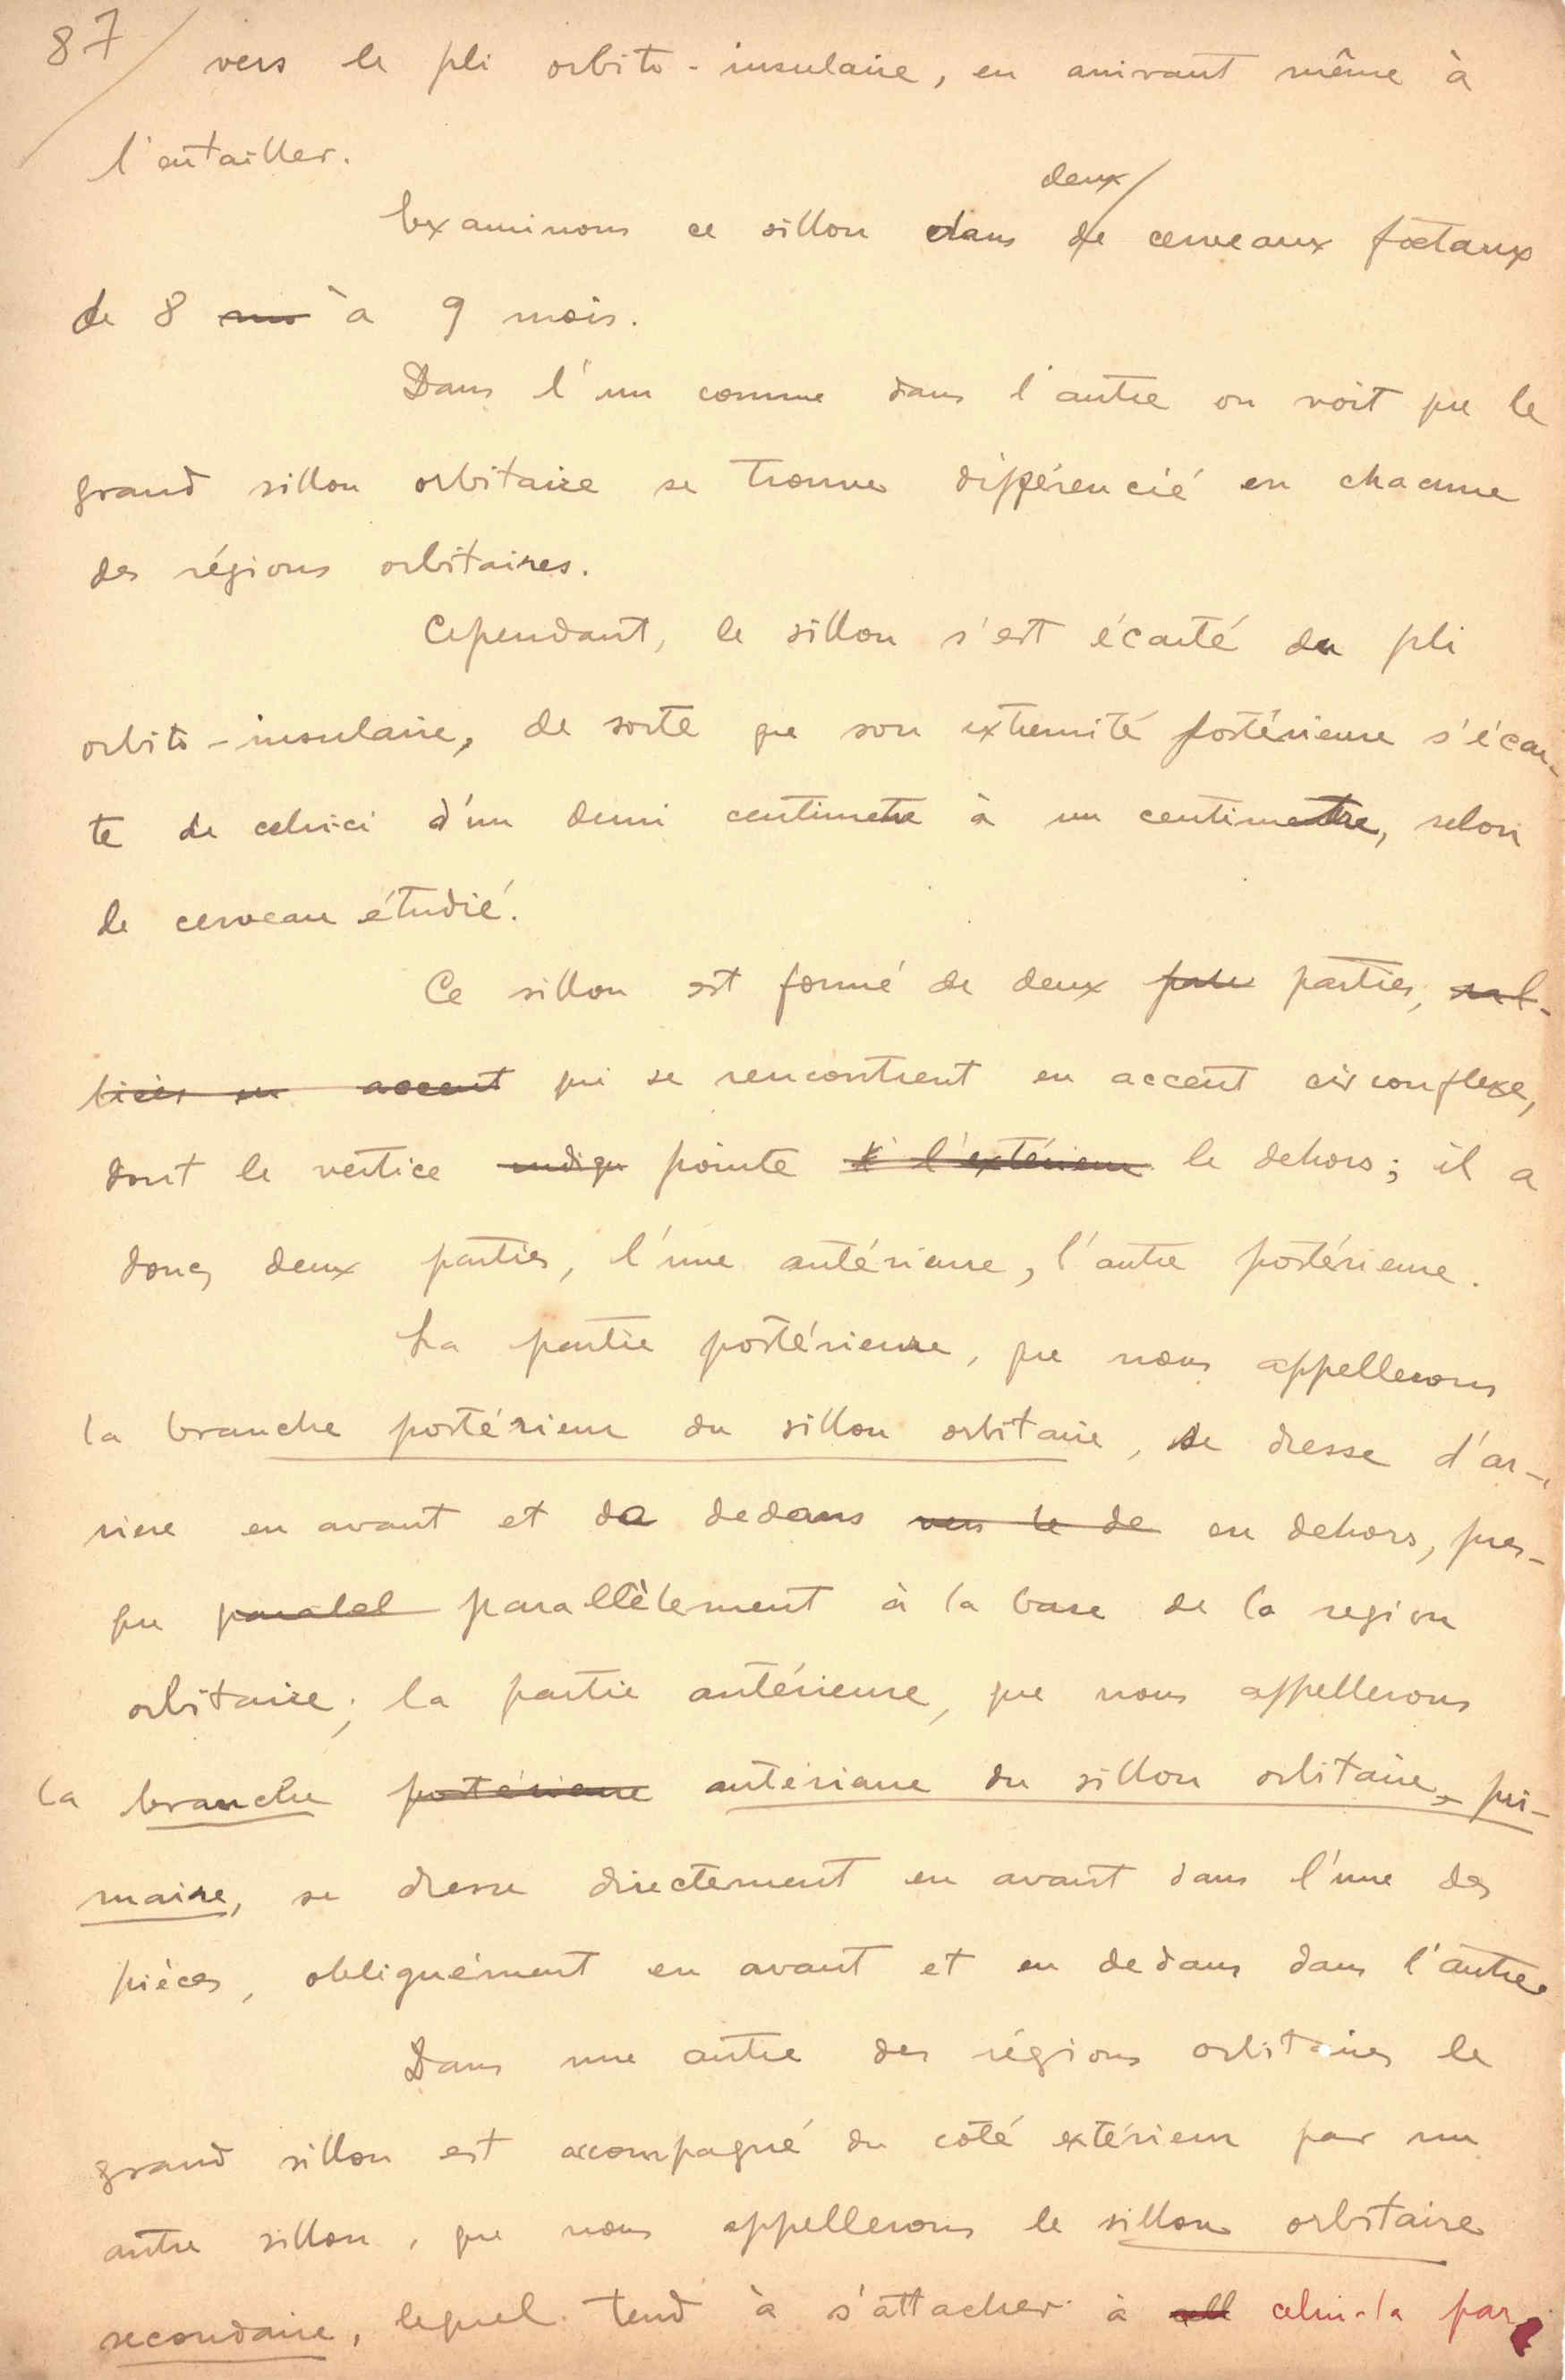 87/ vers le pli orbito-insulaire, en arrivant même à
l'entailler.
deux/
Examinons ce sillon dans de cerveaux fœtaux
de 8 mo à 9 mois.
Dans l'un comme dans l'autre on voit que le
grand sillon orbitaire se trouve différencié en chacune
des régions orbitaires.
Cependant, le sillon s'est écarté du pli
orbito-insulaire, de sorte que son extremité postérieure s'écar-
te de celui-ci d'un demi centimetre à un centimetre, selon
le cerveau étudié.
Ce sillon est formé de deux parties,
accent qui se rencontrent en accent circonflexe,
dont le vertice indiqu pointe à l'extérieur le dehors; il a
donc deux parties, l'une antérieure, l'autre postérieure.
La partie postérieure, que nous appellerons
la branche postérieur du sillon orbitaire, se dresse d'ar-
riere en avant et de dedans vers le de en dehors, pres-
que paralel parallèlement à la base de la region
orbitaire; la partie antérieure, que nous appellerons
la branche postérieure antérieure du sillon orbitaire, pri-
maire, se dresse directement en avant dans l'une des
pièces, obliquément en avant et en dedans dans l'autre.
Dans une autre des régions orbitaires le
grand sillon est accompagné du coté extérieur par un
autre sillon, que nous appellerons le sillon orbitaire
secondaire, lequel tend à s'attacher à cell celui-la par